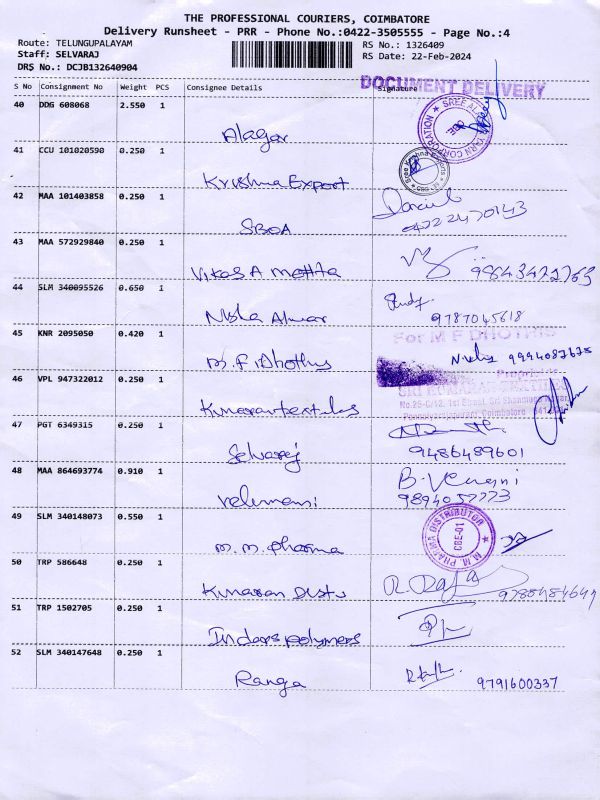 THE PROFESSIONAL COURIERS, COIMBATORE
Delivery Runsheet - PRR - Phone No.:0422-3505555 - Page No.:4
Route: TELUNGUPALAYAM
Staff: SELVARAJ
DRS No.: DCJB132640904
RS No.: 1326409
RS Date: 22-Feb-2024
DOCUMENT DELIVERY
S No Consignment No Weight PCS Consignee Details Signature
40 DDG 608068 2.550 1
Alagar
YARN CORPORATION
41 CCU 101020590 0.250 1
Krishna Export
42 MAA 101403858 0.250 1
SBOA 0422 2470143
43 MAA 572929840 0.250 1
Vikas A Mehta 9843472763
44 SLM 340095526 0.650 1
Nisha Alwar 9787045618
45 KNR 2095050 0.420 1
For M F DHOTHIS
M.F. Dhothys 9994087675
46 VPL 947322012 0.250 1
Kumaran textiles
47 PGT 6349315 0.250 1
Selvaraj 9486489601
48 MAA 864693774 0.910 1
velumani
49 SLM 340148073 0.550 1
M.M. Pharma
M.M. PHARMA DISTRIBUTOR
CBE-01
50 TRP 586648 0.250 1
Kumaran Distu
51 TRP 1502705 0.250 1
Indors polymers
52 SLM 340147648 0.250 1
Ranga 9791600337